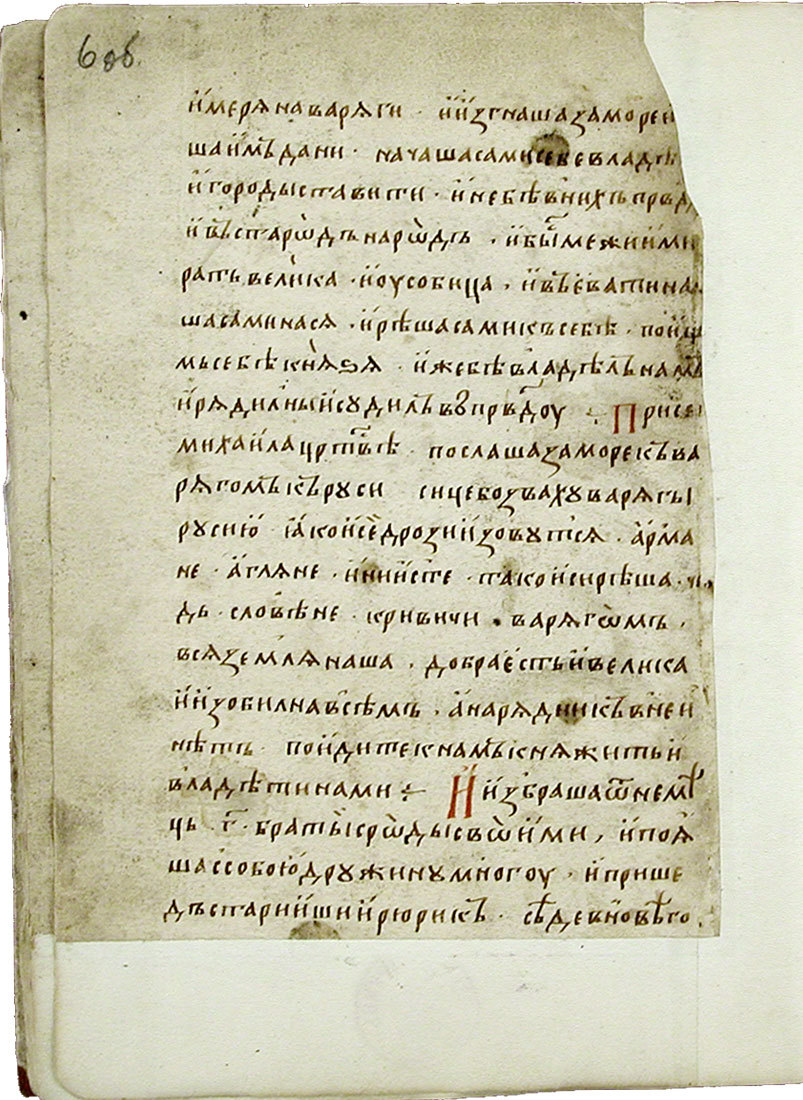 6 об.
и҆меря наваряги · и҆и҆згнаша заморей
ша и҆мъ дани · начаша сами себе владѣ
и҆ городы ставити · и҆ не бѣ в них ь правд
и҆ въста рѡдъ на рѡдъ · и҆ бы меж ими
рать велика · и҆ оусобица · и҆ въевати на
ша сами на ся · и҆ рѣша сами к себѣ · поищ
мь себѣ кнѧѕя · и҆же бѣ владѣлъ намъ
и҆ рядил ны и҆ судилъ в правдоу ÷ При се
михаила црⷭ҇твѣ · послаша за море къ ва
рягомъ къ руси сице бо зваху варягы
русию · ꙗко и҆ се друзии зовутся · армѧ
не · а҆гляне · и҆нии сте · тако и҆ си рѣша · чю
дь · словѣне · кривичи · варягѡмъ ·
вся земля наша · добра есть и҆ велика
и҆ и҆зобилна всѣмъ · а҆ нарядникъ в ней
нѣтъ · поидите к намъ княжитъ и҆
владѣти нами ÷ И҆ и҆збраша ѿ немⷺ
ць · г҃ · браты с рѡды свѡими, и҆ поꙗ
ша с собою дружину многоу · и҆ прише
дъ старѣиши и҆ рюрикъ · сѣде в новѣго